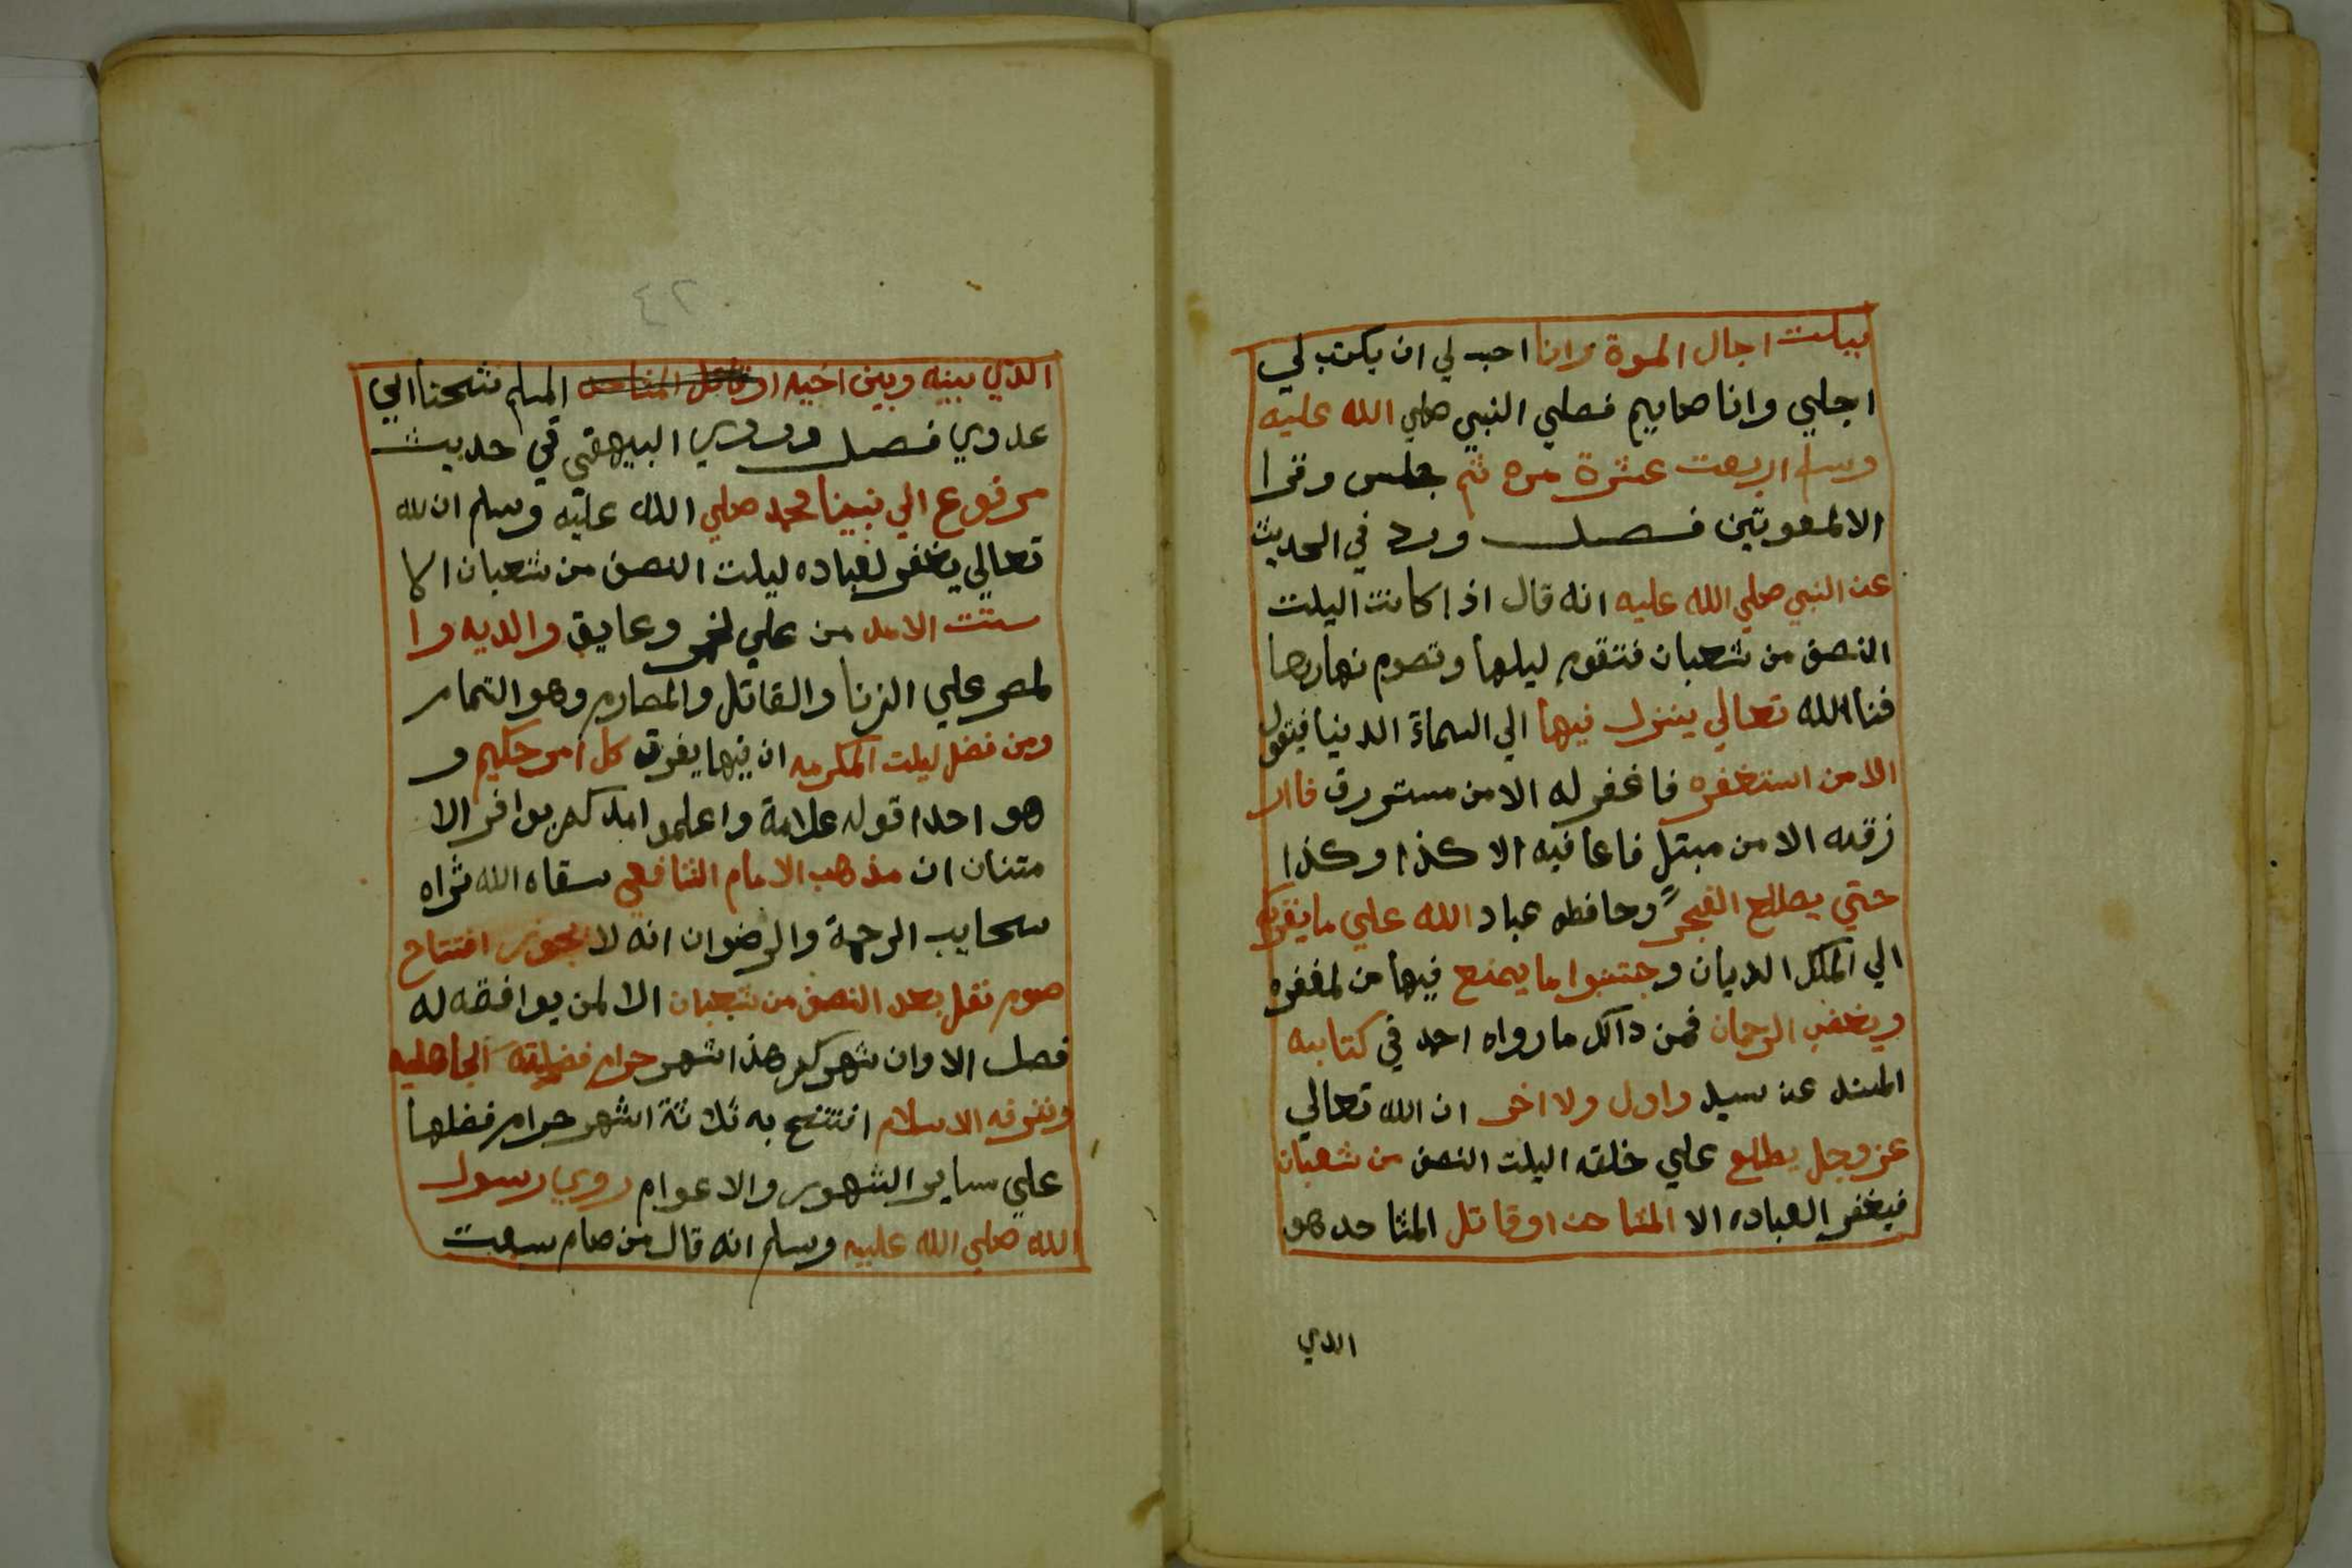 بيلت اجال الموة وانا احب لي ان يكتب لي
اجلي وانا صايم فصلي النبي صلي الله عليه
وسلم اربعت عشرة مره ثم جلس وقرا
الالمعوبتين فصل ورد في الحديث
عن النبي صلي الله عليه انه قال اذا كانت اليلت
النصف من شعبان فتقوم ليلها وتصوم نهارها
فنا الله تعالي ينزل فيها الي السماة الدنيا فيقول
الا من استغفره فاغفر له الا من مسترزق فاار
زقه الا من مبتل فاعافيه الا كذا وكذا
حتي يطلع الفجر وحافظو عباد الله علي ما يقربكم
الي الملك الديان وجتنبوا ما يمنع فيها من لمغفره
ويغضب الرحمان فمن دالك ما رواه احمد في كتابه
المسند عن سيد واول ولا اخر ان الله تعالي
عز وجل يطلع علي خلقه اليلت النصف من شعبان
فيغفر العباده الا المشاحن اوقاتل المشاحد هو
الدي
٢٤
الذي بينه وبين اخيه اوقاتل المشاحن المسلم شحناابي
عدوي فصل وروي البيهقي في حديث
مرفوع الي نبينا محمد صلي الله عليه وسلم ان لله
تعالي يغفر لعباده ليلت النصف من شعبان الا
ستت الامد من علي لخمر وعايق والديه وا
لمصر علي الزنا والقاتل والمصارم وهو التمار
ومن فضل ليلت المكرمه ان فيها يفرق كل امر حكيم و
هو احدا قوله علامة واعلموا امدكم بوافر الا
متنان ان مذهب الامام الشافعي سقاه الله ثراه
سحايب الرحمة والرضوان انه لا يجوز افتتاح
صوم نفل بعد النصف من شعبان الا لمن يوافقه له
فصل الا وان شهركم هذا شهر حرام فضلته الجاهليه
وشرفه الاسلام افتتح به ثلاثة اشهر حرام فضلها
علي ساير الشهور والاعوام روي رسول
الله صلي الله عليه وسلم انه قال من صام سبعت